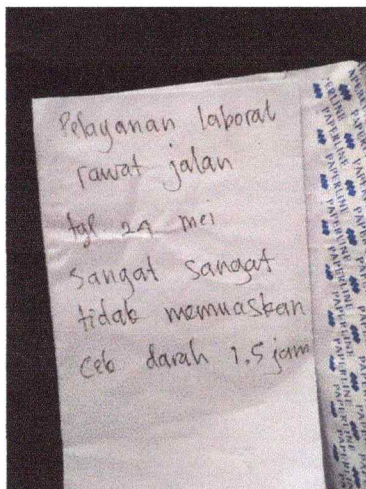 Pelayanan laborat
rawat jalan
tgl 24 mei
sangat sangat
tidak memuaskan
Cek darah 1.5 jam
PAPERLINE
PAPERLINE
PAPERLINE
PAPERLINE
PAPERLINE
PAPERLINE
PAPERLINE